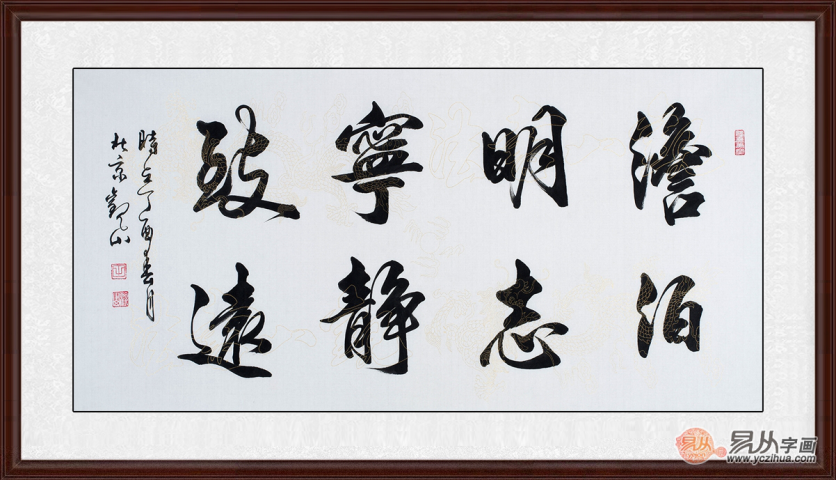 澹泊
明志
寧靜
致遠
時在丁酉春月
北京觀山
易从字画
www.yczihua.com